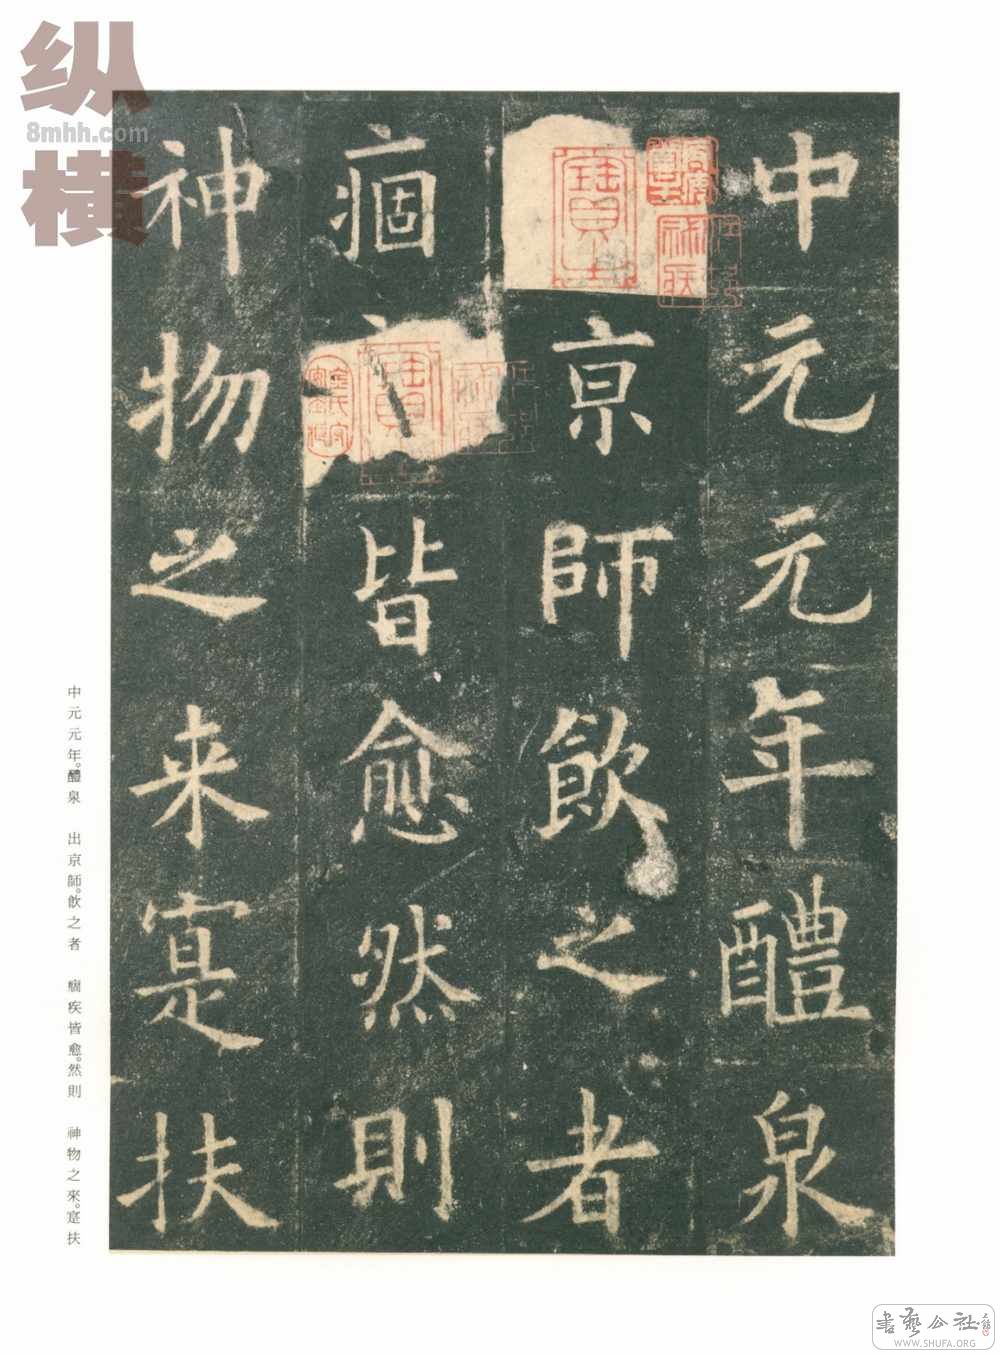 中元元年醴泉
京師飲之者
痼皆愈然則
神物之来寔扶
中元元年。醴泉 出京師。飲之者 痼疾皆愈。然則 神物之來。寔扶
纵横
8mhh.com
書藝公社
WWW.SHUFA.ORG